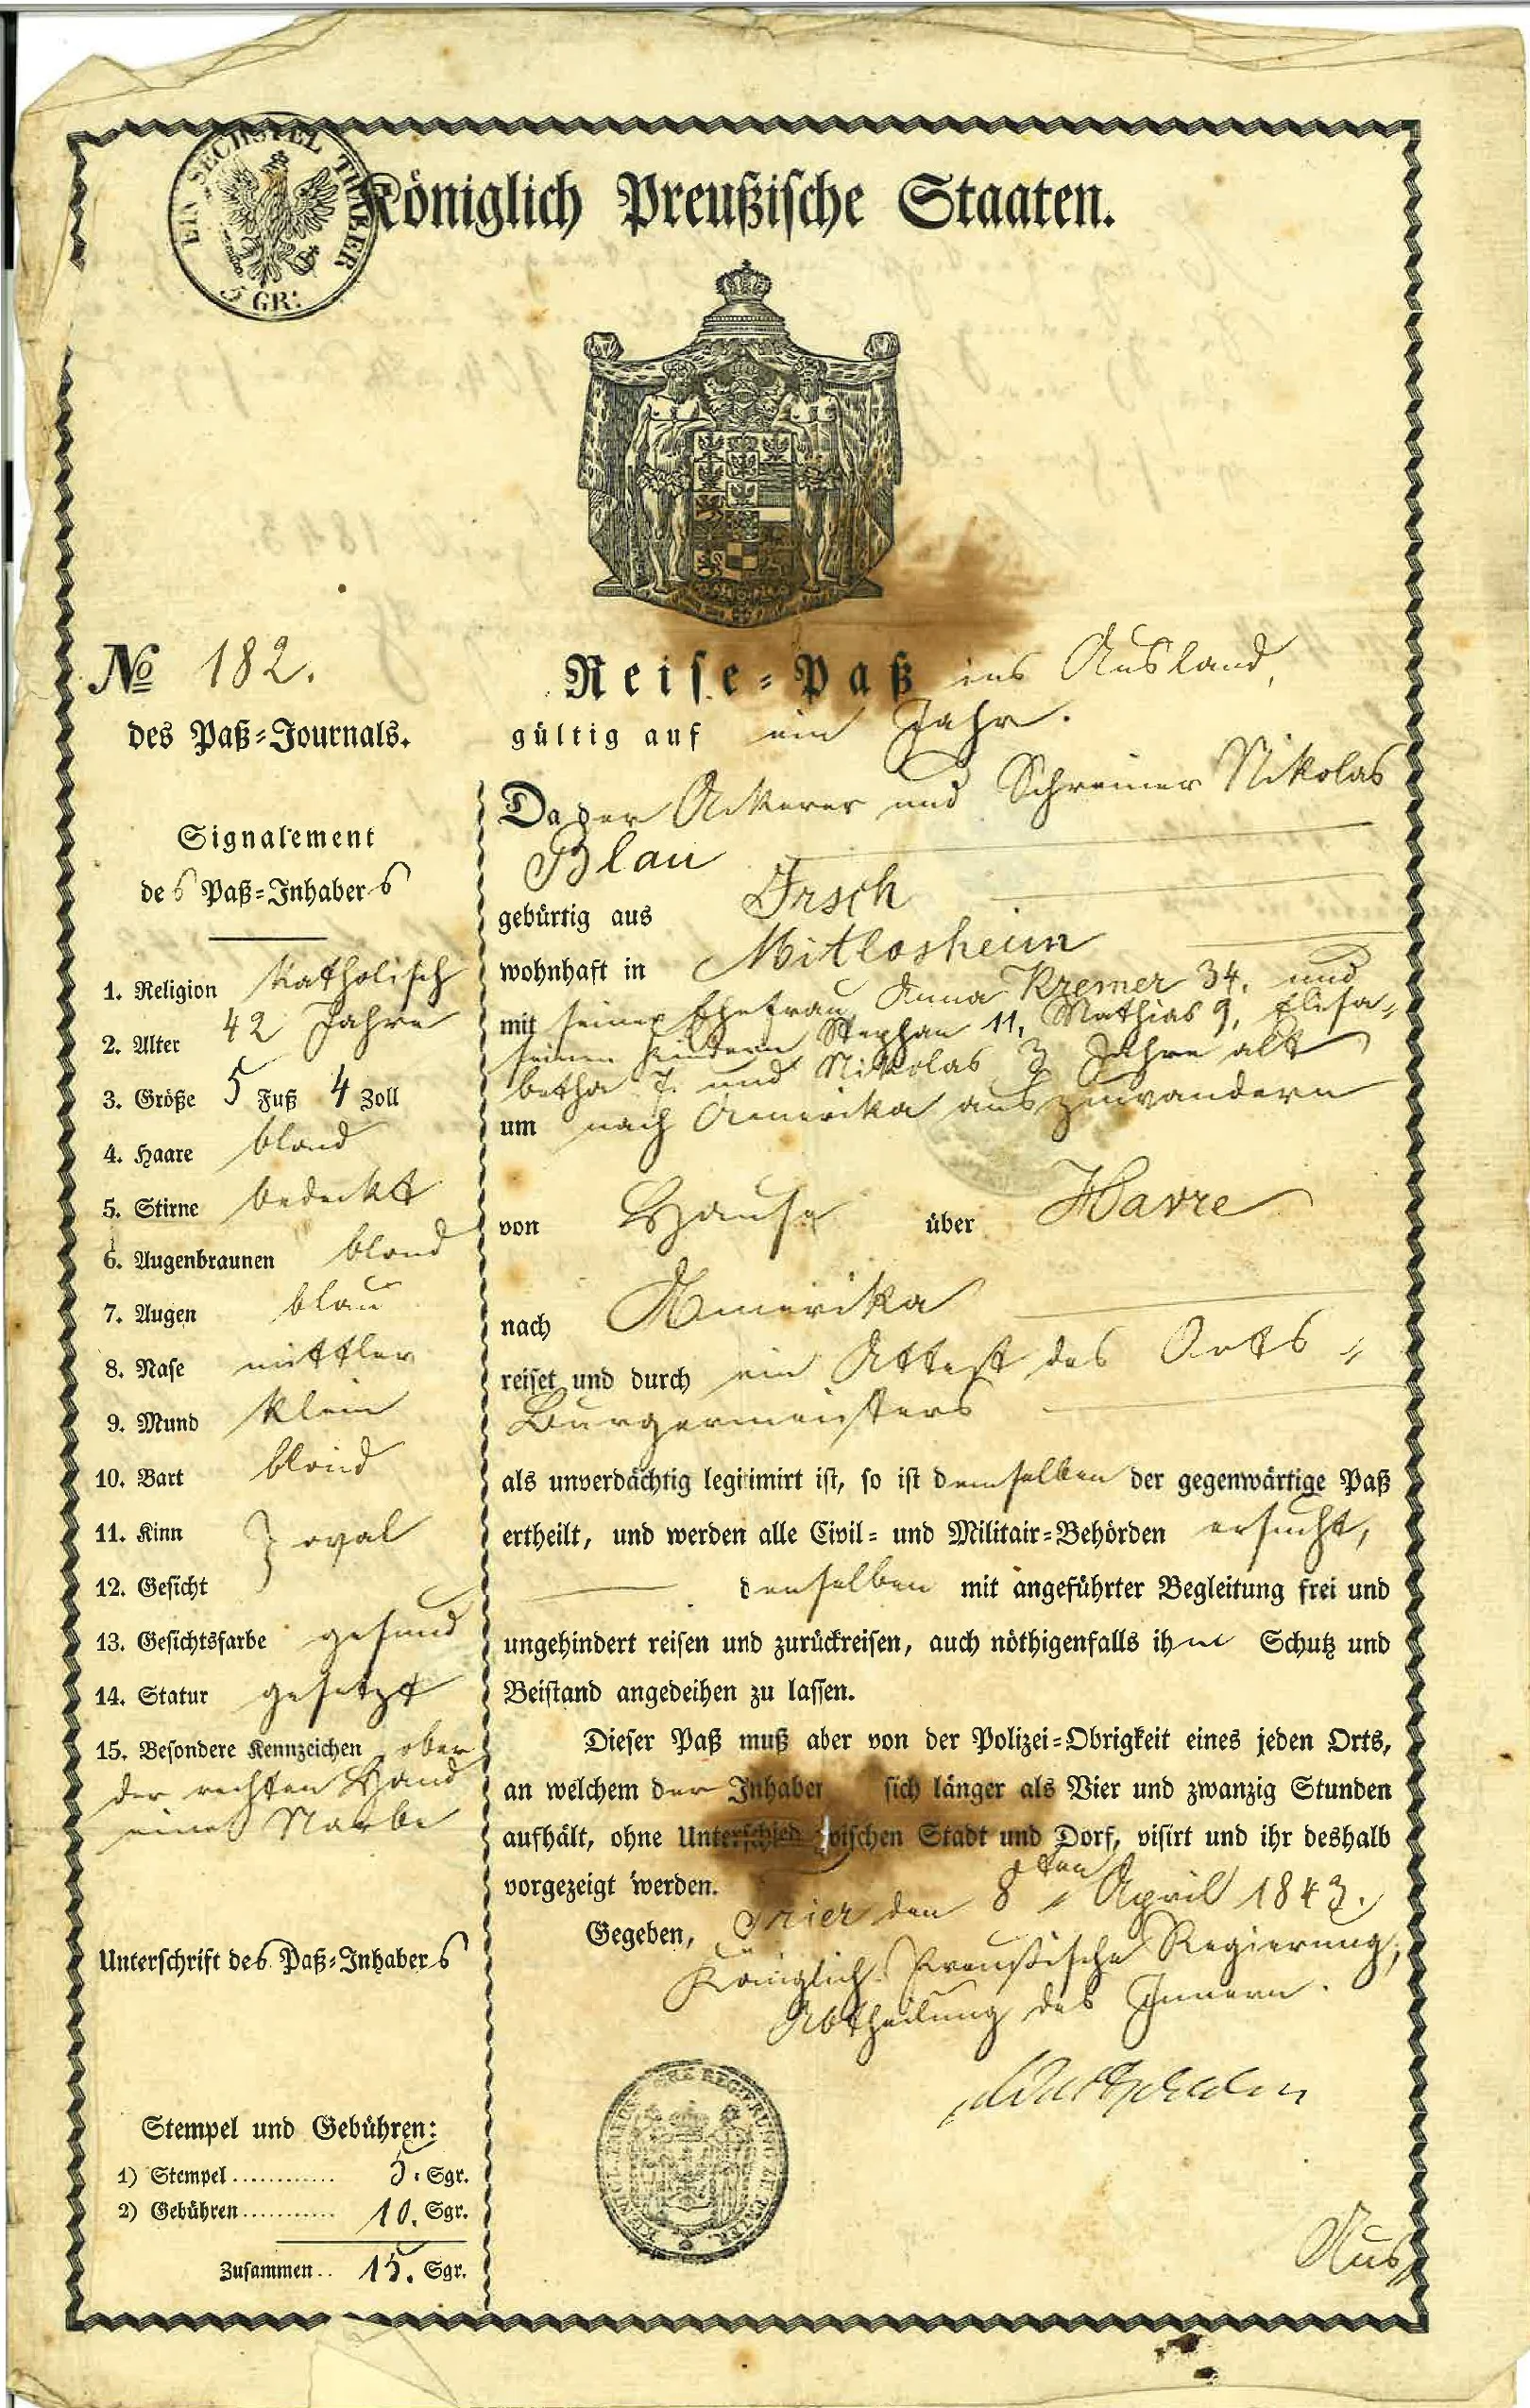 EIN SECHSTEL THALER
5 GR:
Königlich Preußische Staaten.
No 182.
des Paß-Journals.
Signalement
des Paß-Inhabers
1. Religion katholisch
2. Alter 42 Jahre
3. Größe 5 Fuß 4 Zoll
4. Haare blond
5. Stirne bedeckt
6. Augenbraunen blond
7. Augen blau
8. Nase mittler
9. Mund klein
10. Bart blond
11. Kinn } oval
12. Gesicht
13. Gesichtsfarbe gesund
14. Statur gesetzt
15. Besondere Kennzeichen ober
der rechten Hand
eine Narbe
Unterschrift des Paß-Inhabers
Stempel und Gebühren:
1) Stempel............ 5. Sgr.
2) Gebühren............ 10. Sgr.
Zusammen.. 15. Sgr.
Reise-Paß ins Ausland,
gültig auf ein Jahr.
Da der Ackerer und Schreiner Nikolas
Blau
gebürtig aus Irsch
wohnhaft in Mitlosheim
mit seiner Ehefrau Anna Kremer 34, und
seinen Kindern Stephan 11, Mathias 9, Elisa-
betha 7. und Nikolas 3 Jahre alt
um nach Amerika auszuwandern
von Hause über Havre
nach Amerika
reiset und durch ein Attest des Orts-
Bürgermeisters
als unverdächtig legitimirt ist, so ist demselben der gegenwärtige Paß
ertheilt, und werden alle Civil- und Militair-Behörden ersucht,
denselben mit angeführter Begleitung frei und
ungehindert reisen und zurückreisen, auch nöthigenfalls ihm Schutz und
Beistand angedeihen zu lassen.
Dieser Paß muß aber von der Polizei-Obrigkeit eines jeden Orts,
an welchem der Inhaber sich länger als Vier und zwanzig Stunden
aufhält, ohne Unterschied zwischen Stadt und Dorf, visirt und ihr deshalb
vorgezeigt werden.
Gegeben, Trier den 8ten April 1843.
Königlich Preußische Regierung,
Abtheilung des Innern.
Aus